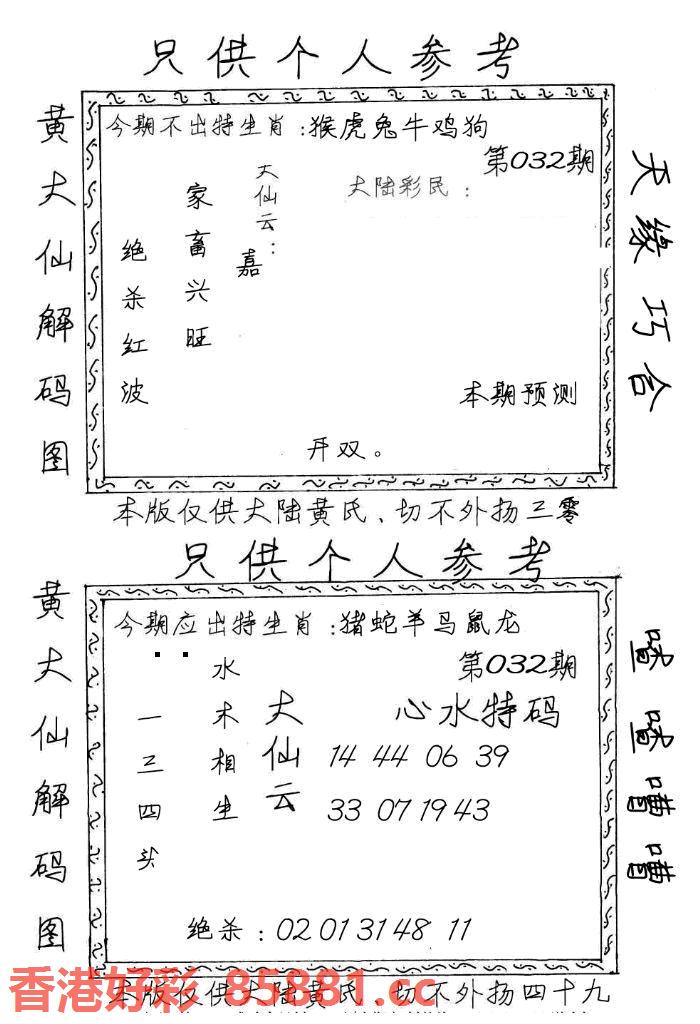 只供个人参考
黄大仙解码图
今期不出特生肖：猴虎兔牛鸡狗
第032期
大陆彩民：
大仙云：
嘉
家畜兴旺
绝杀红波
本期预测
开双。
天缘巧合
本版仅供大陆黄氏、切不外扬三零
只供个人参考
黄大仙解码图
今期应出特生肖：猪蛇羊马鼠龙
第032期
心水特码
14 44 06 39
33 07 19 43
大仙云
水木相生
一三四头
绝杀：02 01 31 48 11
香港好彩 85881.cc
本版仅供大陆黄氏、切不外扬四十九